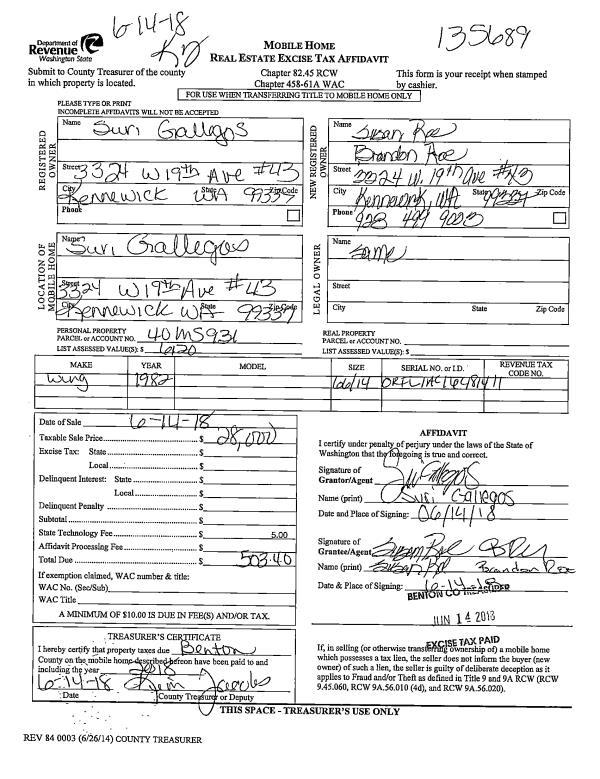 6-14-18
135689
Department of
Revenue
Washington State
MOBILE HOME
REAL ESTATE EXCISE TAX AFFIDAVIT
Submit to County Treasurer of the county
in which property is located.
Chapter 82.45 RCW
Chapter 458-61A WAC
This form is your receipt when stamped
by cashier.
FOR USE WHEN TRANSFERRING TITLE TO MOBILE HOME ONLY
PLEASE TYPE OR PRINT
INCOMPLETE AFFIDAVITS WILL NOT BE ACCEPTED
REGISTERED OWNER
Name Suri Gallegos
Street 3324 W 19th Ave #43
City Kennewick State WA 99337 Zip Code
Phone
NEW REGISTERED OWNER
Name Susan Roe
Brandon Roe
Street 3324 W. 19th Ave #43
City Kennewick, WA State Zip Code
Phone
LOCATION OF MOBILE HOME
Name Suri Gallegos
Street 3324 W 19th Ave #43
City Kennewick State WA 99337 Zip Code
LEGAL OWNER
Name Same
Street
City State Zip Code
PERSONAL PROPERTY
PARCEL or ACCOUNT NO. 40MS931
LIST ASSESSED VALUE(S): $ 6120
REAL PROPERTY
PARCEL or ACCOUNT NO.
LIST ASSESSED VALUE(S): $
MAKE YEAR MODEL SIZE SERIAL NO. or I.D. REVENUE TAX CODE NO.
1982 66/14
Date of Sale 6-14-18
Taxable Sale Price $ 28,000
Excise Tax: State $
Local $
Delinquent Interest: State $
Local $
Delinquent Penalty $
Subtotal $
State Technology Fee $ 5.00
Affidavit Processing Fee $
Total Due $ 503.40
If exemption claimed, WAC number & title:
WAC No. (Sec/Sub)
WAC Title
A MINIMUM OF $10.00 IS DUE IN FEE(S) AND/OR TAX.
AFFIDAVIT
I certify under penalty of perjury under the laws of the State of
Washington that the foregoing is true and correct.
Signature of
Grantor/Agent
Name (print) Suri Gallegos
Date and Place of Signing: 06/14/18
Signature of
Grantee/Agent
Name (print) Susan Roe Brandon Roe
Date & Place of Signing: 6-14-18
JUN 14 2018
EXCISE TAX PAID
TREASURER'S CERTIFICATE
I hereby certify that property taxes due Benton
County on the mobile home described hereon have been paid to and
including the year 2018
6-14-18
Date County Treasurer or Deputy
If, in selling (or otherwise transferring ownership of) a mobile home
which possesses a tax lien, the seller does not inform the buyer (new
owner) of such a lien, the seller is guilty of deliberate deception as it
applies to Fraud and/or Theft as defined in Title 9 and 9A RCW (RCW
9.45.060, RCW 9A.56.010 (4d), and RCW 9A.56.020).
THIS SPACE - TREASURER'S USE ONLY
REV 84 0003 (6/26/14) COUNTY TREASURER